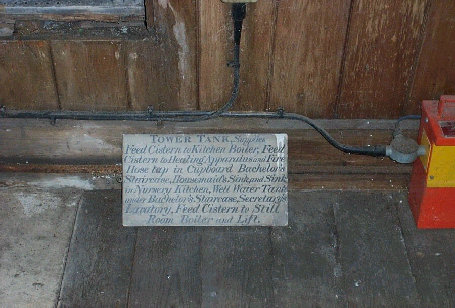 TOWER TANK, Supplies
Feed Cistern to Kitchen Boiler, Feed
Cistern to Heating Apparatus and Fire
Hose tap in Cupboard Bachelor's
Staircase, Housemaid's Sink and Sink
in Nursery Kitchen, Well Water Tank
under Bachelor's Staircase, Secretary's
Lavatory, Feed Cistern to Still
Room Boiler and Lift.